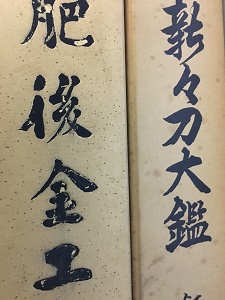 新々刀大鑑
肥後金工